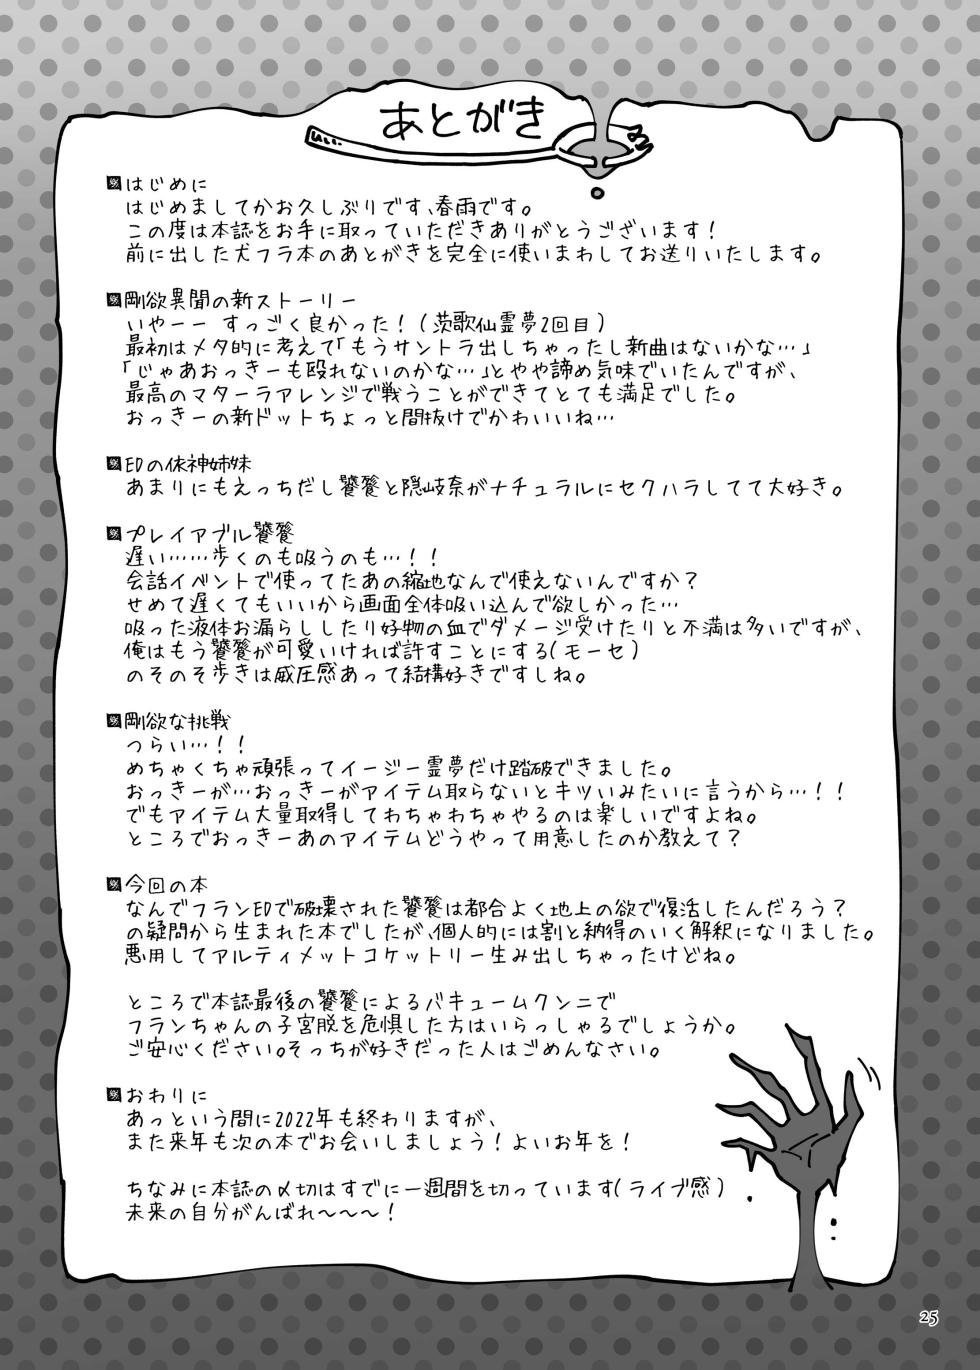 あとがき
はじめに
はじめましてかお久しぶりです、春雨です。
この度は本誌をお手に取っていただきありがとうございます!
前に出した犬フラ本のあとがきを完全に使いまわしてお送りいたします。
剛欲異聞の新ストーリー
いやーー すっごく良かった!(茨歌仙霊夢2回目)
最初はメタ的に考えて「もうサントラ出しちゃったし新曲はないかな…」
「じゃあおっきーも殴れないのかな…」とやや諦め気味でいたんですが、
最高のマターラアレンジで戦うことができてとても満足でした。
おっきーの新ドットちょっと間抜けでかわいいね…
EDの依神姉妹
あまりにもえっちだし饕餮と隠岐奈がナチュラルにセクハラしてて大好き。
プレイアブル饕餮
遅い……歩くのも吸うのも…!!
会話イベントで使ってたあの縮地なんで使えないんですか?
せめて遅くてもいいから画面全体吸い込んで欲しかった…
吸った液体お漏らししたり好物の血でダメージ受けたりと不満は多いですが、
俺はもう饕餮が可愛いければ許すことにする(モーセ)
のそのそ歩きは威圧感あって結構好きですしね。
剛欲な挑戦
つらい…!!
めちゃくちゃ頑張ってイージー霊夢だけ踏破できました。
おっきーが…おっきーがアイテム取らないとキツいみたいに言うから…!!
でもアイテム大量取得してわちゃわちゃやるのは楽しいですよね。
ところでおっきーあのアイテムどうやって用意したのか教えて?
今回の本
なんでフランEDで破壊された饕餮は都合よく地上の欲で復活したんだろう?
の疑問から生まれた本でしたが、個人的には割と納得のいく解釈になりました。
悪用してアルティメットコケットリー生み出しちゃったけどね。
ところで本誌最後の饕餮によるバキュームクンニで
フランちゃんの子宮脱を危惧した方はいらっしゃるでしょうか。
ご安心ください。そっちが好きだった人はごめんなさい。
おわりに
あっという間に2022年も終わりますが、
また来年も次の本でお会いしましょう!よいお年を!
ちなみに本誌の〆切はすでに一週間を切っています(ライブ感)
未来の自分がんばれ～～～!
25